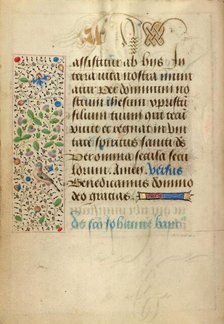 assistitur ab hiis in
terra vita nostra muni
atur Per dominum no
strum ihesum xpristum
filium tuum Qui tecum
vivit et regnat in uni
tate spiritus sancti deus
Per omnia secula secu
lorum. Amen. Versus
Benedicamus domino
deo gracias.
De sco Iohanne bap